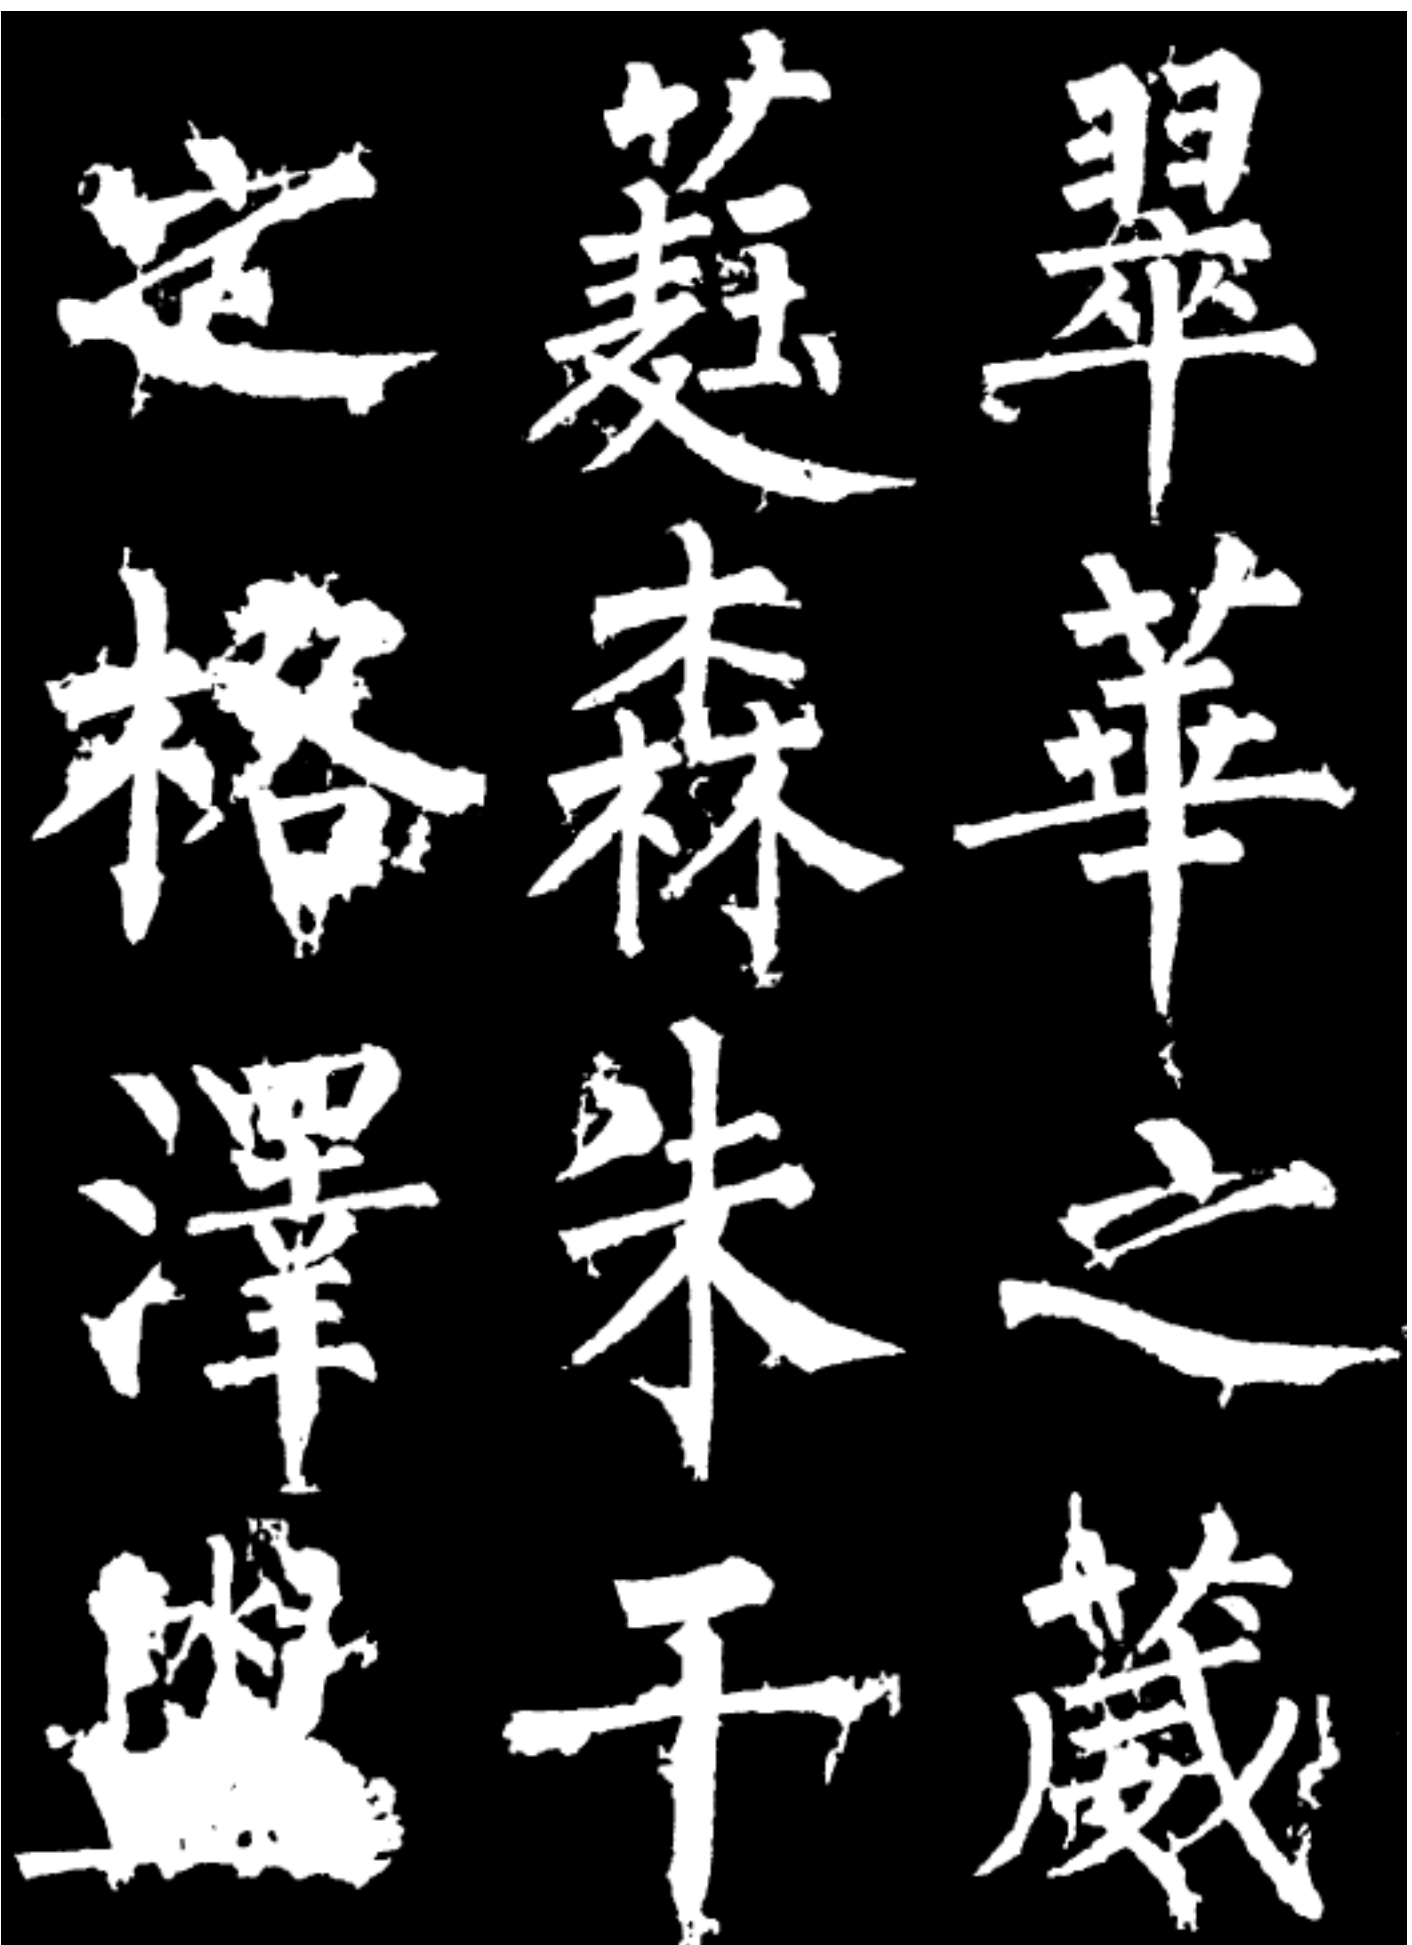 翠華之葳
蕤森朱干
之格澤盥